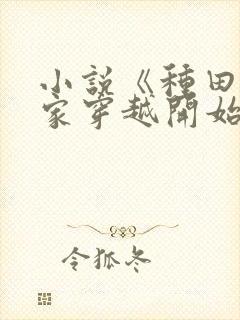 小説《種田
家穿越開始
令狐冬